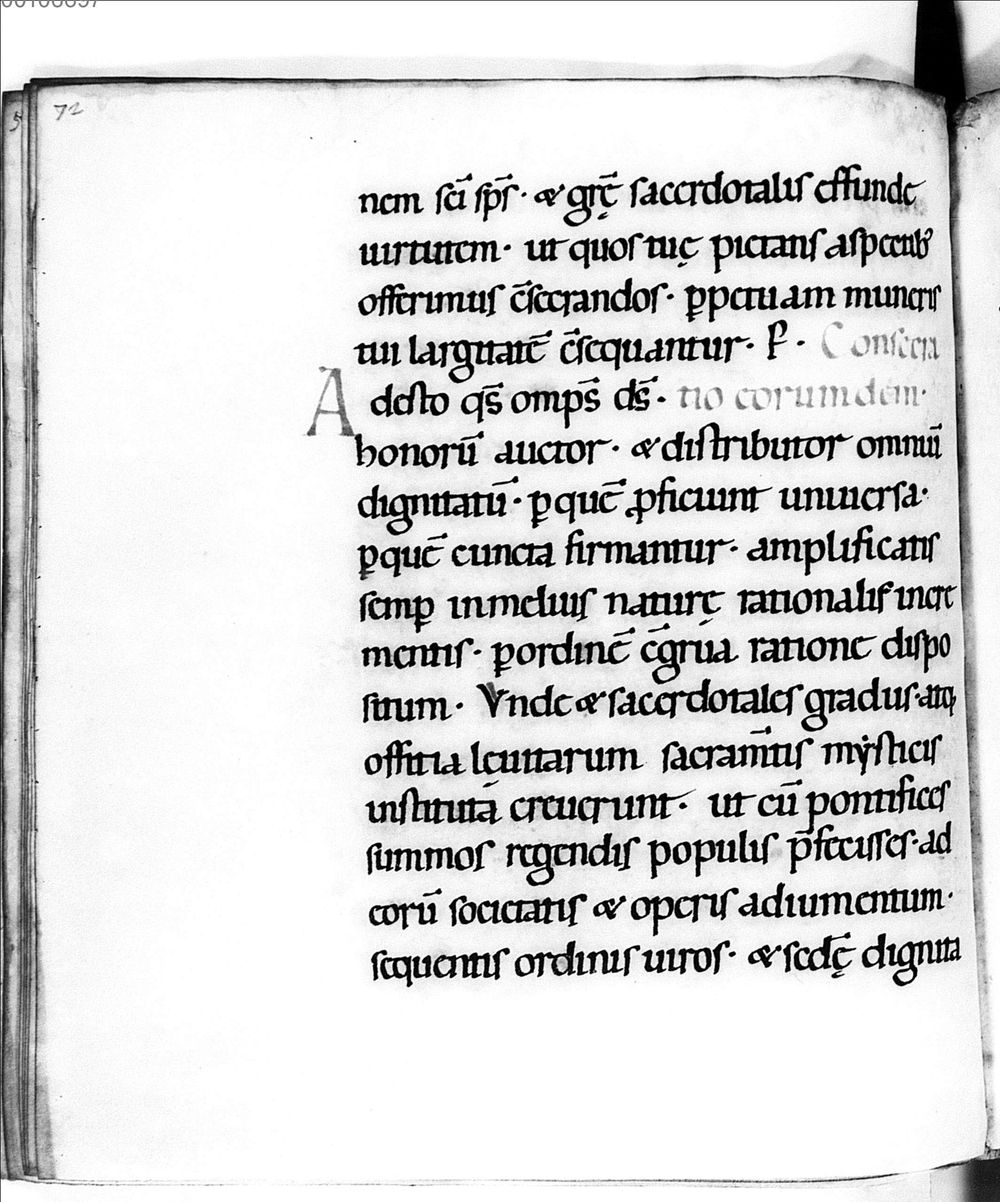 00106897
72
nem sc̄i sp̄s · & gr̄ę sacerdotalis effunde
uirtutem · ut quos tuę pietatis aspectib;
offerimus c̄secrandos · ꝑpetuam muneris
tui largitatē c̄sequantur · P · Consecra
Adesto qs̄ omps̄ ds̄ · tio eorumdem ·
honorū auctor · & distributor omniū
dignitatū · ꝑ quē ꝓficiunt uniuersa ·
ꝑ quē cuncta firmantur · amplificatis
semꝑ in melius naturę rationalis incre
mentis · ꝑ ordinē c̄grua ratione dispo
situm · Vnde & sacerdotales gradus · atq;
offitia leuitarum sacram̄tis mẏsticis
instituta creuerunt · ut cū pontifices
summos regendis populis p̄fecisses · ad
eorū societatis & operis adiumentum ·
sequentis ordinis uiros · & sedę dignita